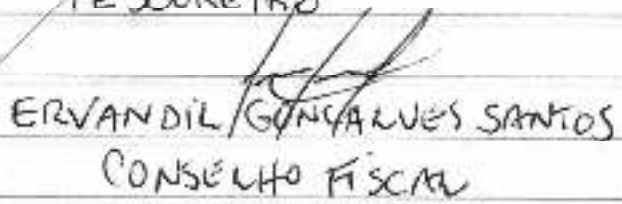 TESOUREIRO
ERVANDIL GONÇALVES SANTOS
CONSELHO FISCAL